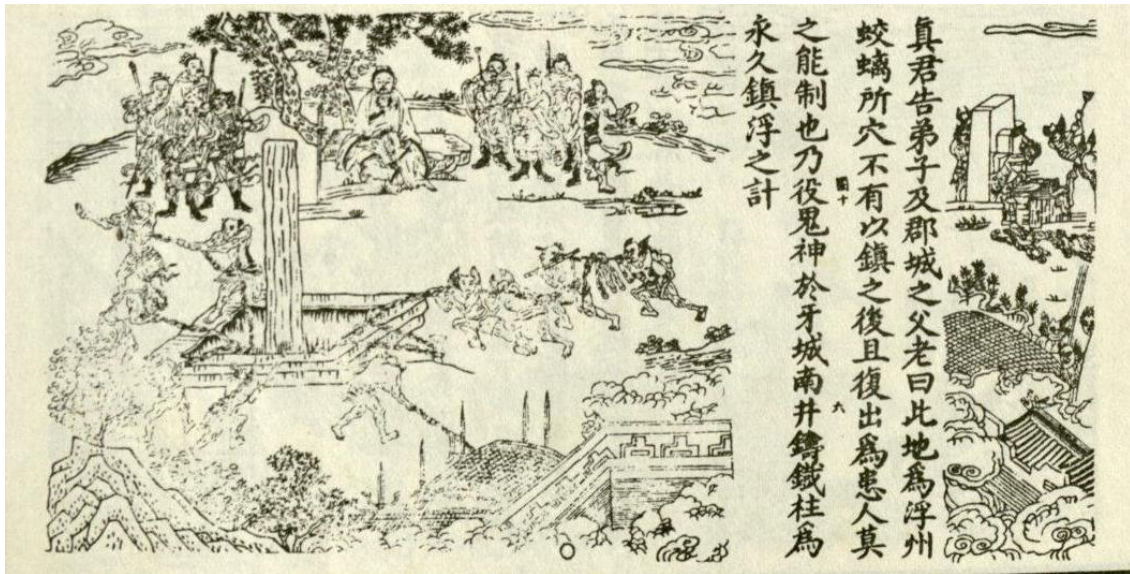 真君告弟子及郡城之父老曰此地為浮州
蛟螭所穴不有以鎮之後且復出為患人莫
圖十
六
之能制也乃役鬼神於牙城南井鑄鐵柱為
永久鎮浮之計